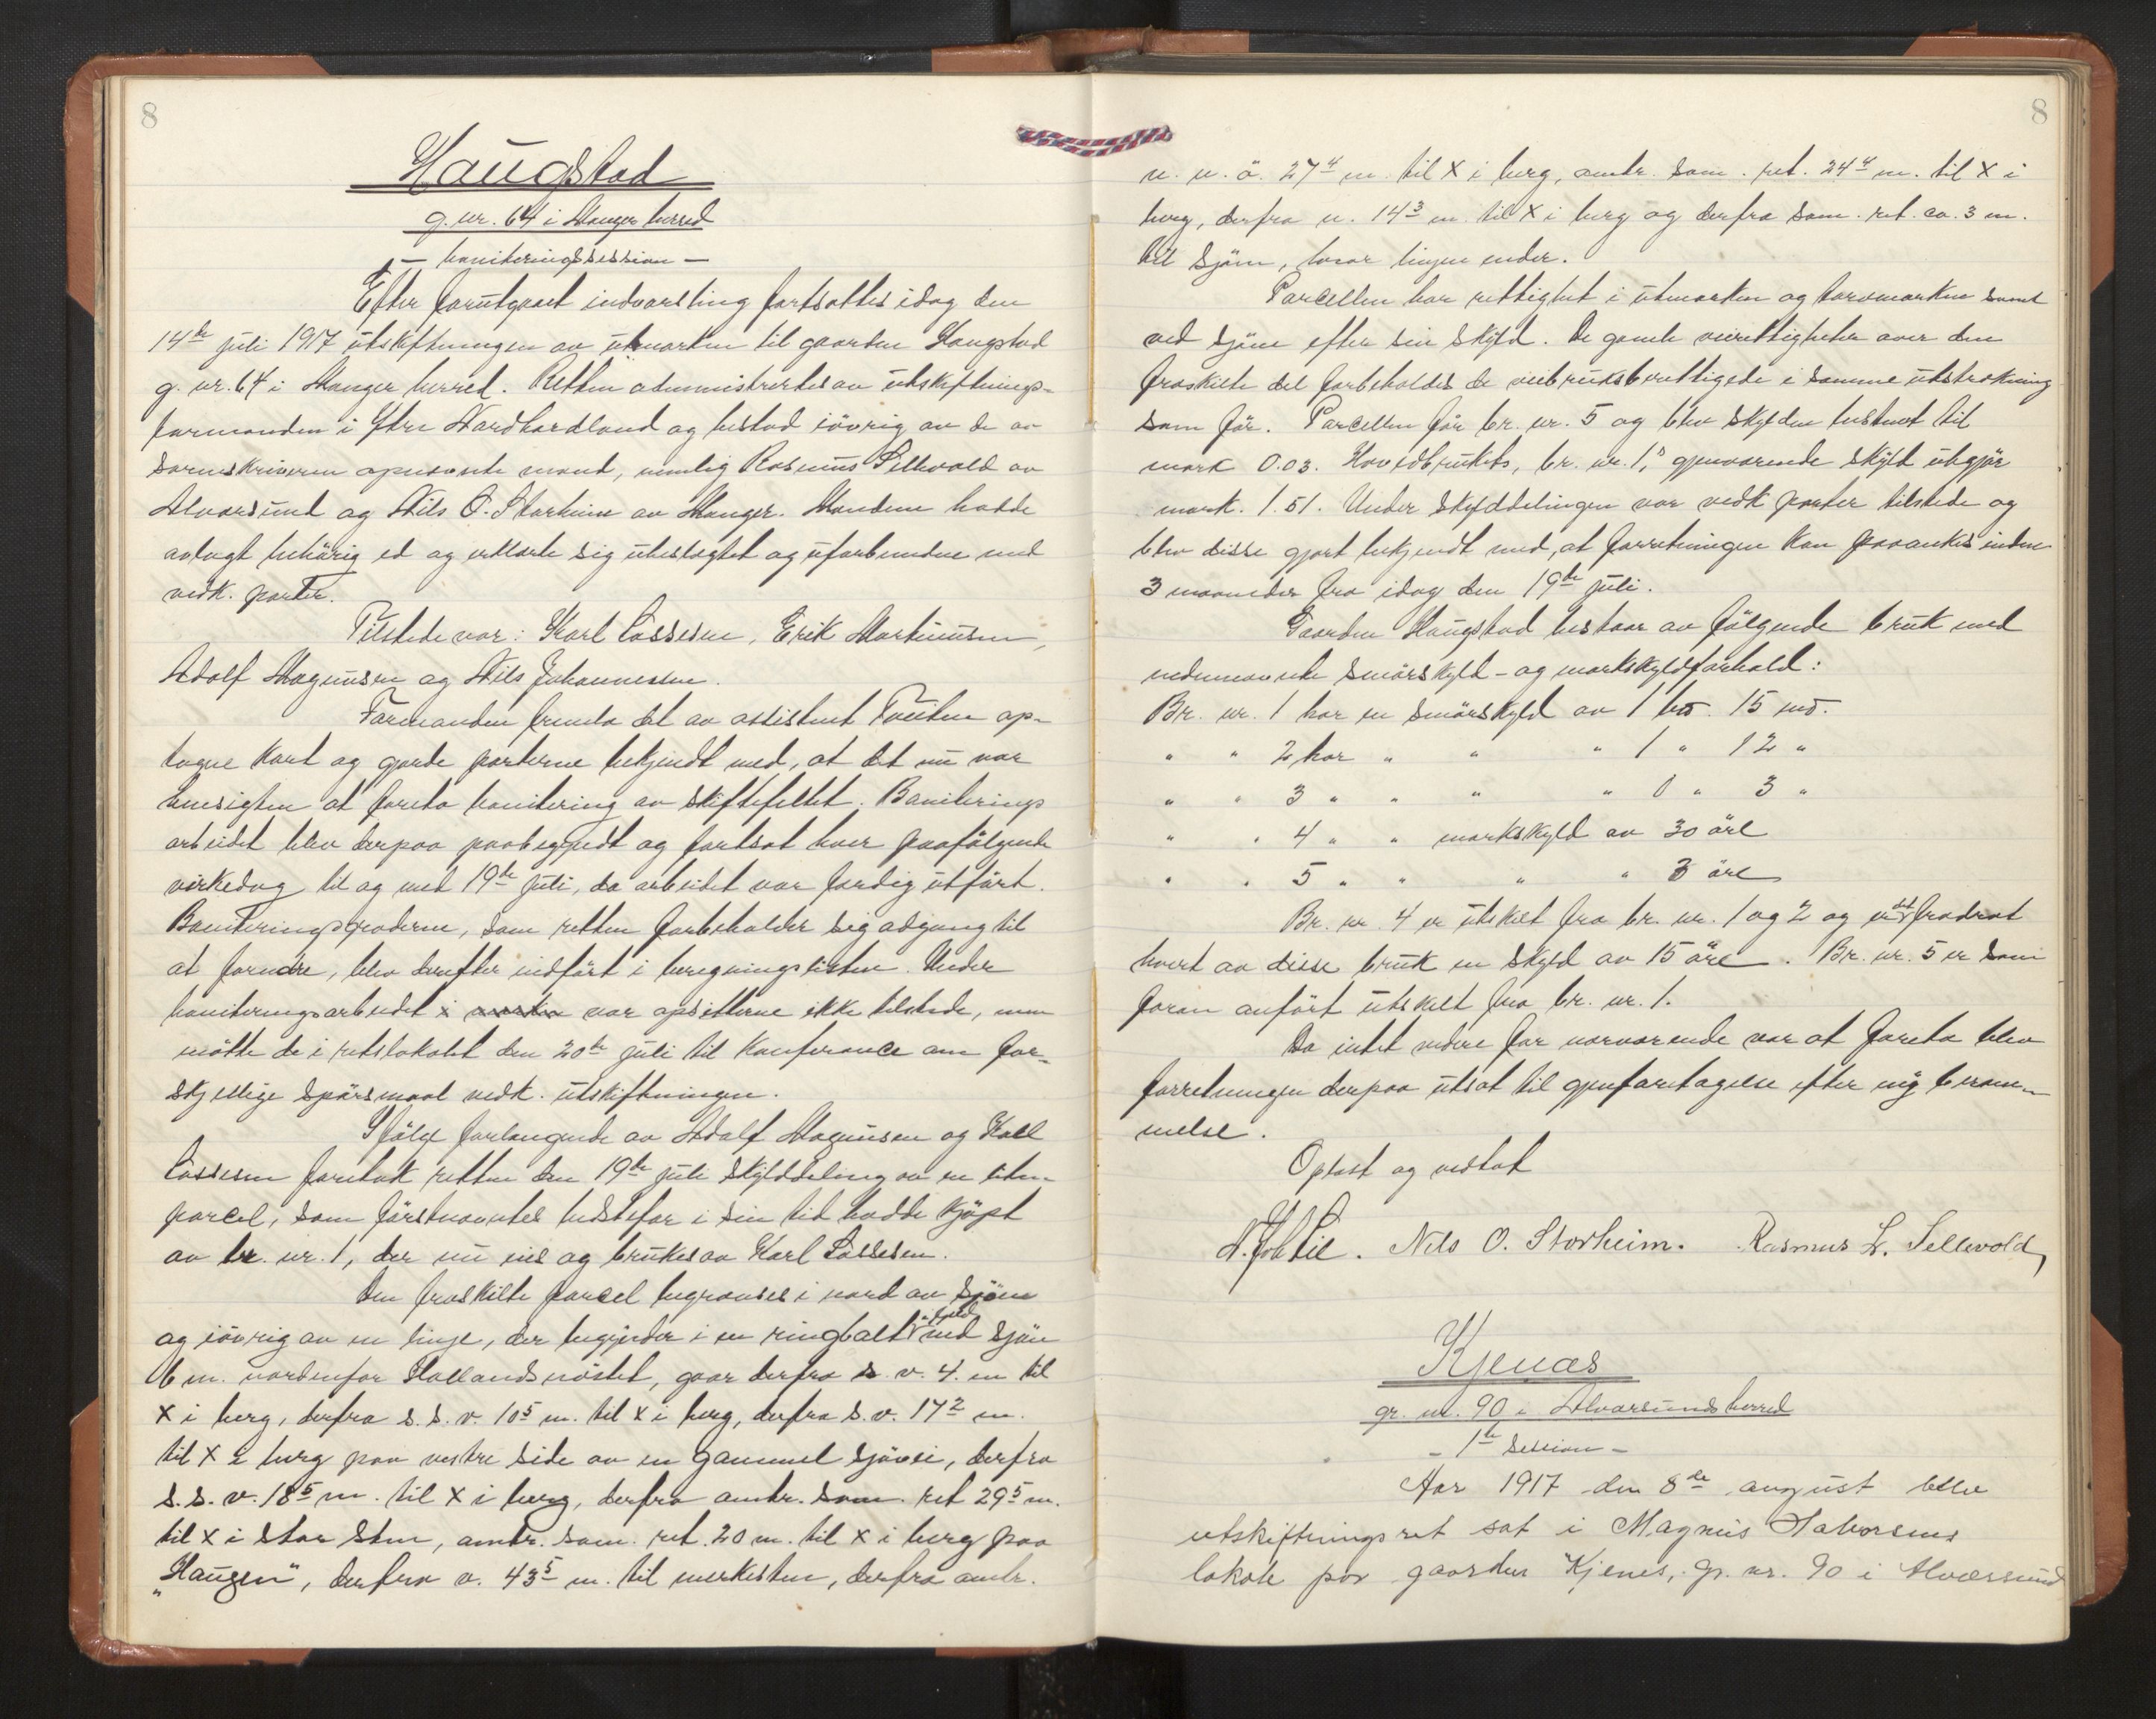 8
Haugstad
g. nr. 64 i Manger herred
– boniteringssession –
Efter forutgaaet indvarsling fortsattes idag den
14de juli 1917 utskiftningen av utmarken til gaarden Haugstad
g. nr. 64 i Manger herred. Retten administrertes av utskiftnings-
formanden i Ytre Nordhordland og bestod iövrig av de av
sorenskriveren opnævnte mænd, nemlig Rasmus Sellevold av
Alværsund og Nils O. Storheim av Manger. Mændene hadde
avlagt behörig ed og erklærte sig ubeslegtet og uforbundne med
vedk. parter.
Tilstede var: Karl Lassesen, Erik Martinusen,
Adolf Magnusen og Nils Johannessen.
Formanden fremla det av assistent Tveiten op-
tagne kart og gjorde parterne bekjendt med, at det nu var
hensigten at foreta bonitering av skiftefeltet. Boniterings
arbeidet blev derpaa paabegyndt og fortsat hver paafölgende
virkedag til og med 19de juli, da arbeidet var færdig utfört.
Boniteringsgraderne, som retten forbeholder sig adgang til
at forandre, blev derefter indfört i beregningslisten. Under
boniteringsarbeidet i marken var opsitterne ikke tilstede, men
mötte de i retslokalet den 20de juli til konferance om for-
skjellige spörsmaal vedk. utskiftningen.
Ifölge forlangende av Adolf Magnusen og Karl
Lassesen foretok retten den 19de juli skylddeling av en liten
parcel, som förstnævntes bedstefar i sin tid hadde kjöpt
av br. nr. 1, der nu eies og brukes av Karl Lassesen.
Den fraskilte parcel begrænses i nord av sjöen
og iövrig av en linje, der begynder i en ringbolt i berg ved sjöen
6 m. nordenfor Hollandsnöstet, gaar derfra s. v. 4. m til
X i berg, derfra s. s. v. 10 5 m. til X i berg, derfra s. v. 17 2 m.
til X i berg paa vestre side av en gammel sjövei, derfra
s. s. v. 18 5 m. til X i berg, derfra omtr. sam. ret 29 5 m.
til X i stor sten, omtr. sam. ret. 20 m. til X i berg paa
"Haugen", derfra v. 43 5 m. til merkesten, derfra omtr.
8
n. n. ö. 27 4 m. til X i berg, omtr. sam. ret. 24 4 m. til X i
berg, derfra n. 14 3 m. til X i berg og derfra sam. ret. ca. 3 m.
til sjöen, hvor linjen ender.
Parcellen har rettighet i utmarken og torvmarken samt
ved sjöen efter sin skyld. De gamle veirettigheter over den
fraskilte del forbeholdes de veibruksberettigede i samme utstrækning
som för. Parcellen får br. nr. 5 og blev skylden bestemt til
mark 0.03. Hovedbrukets, br. nr. 1,s gjenværende skyld utgjör
mark. 1.51. Under skylddelingen var vedk parter tilstede og
blev disse gjort bekjendt med, at forretningen kan paaankes inden
3 maaneder fra idag den 19de juli.
Gaarden Haugstad bestaar av fölgende bruk med
nedennævnte smörskyld- og markskyldforhold:
Br. nr. 1 har en smörskyld av 1 b℔. 15 m℔.
" " 2 har " " " 1 " 12 "
" " 3 " " " " 0 " 3 "
" " 4 " " markskyld av 30 öre
" " 5 " " " " 3 öre
Br. nr. 4 er utskilt fra br. nr. 1 og 2 og er det fradrat
hvert av disse bruk en skyld av 15 öre. Br. nr. 5 er som
foran anfört utskilt fra br. nr. 1.
Da intet videre for nærværende var at foreta blev
forretningen derpaa utsat til gjenforetagelse efter ny beram-
melse.
Oplæst og vedtat
Nils O. Storheim. Rasmus L. Sellevold,
Kjenæs
gr. nr. 90 i Alværsunds herred
– 1te session –
Aar 1917 den 8de august blev
utskiftningsret sat i Magnus Halvorsens
lokale paa gaarden Kjenes, gr. nr. 90 i Alværsund